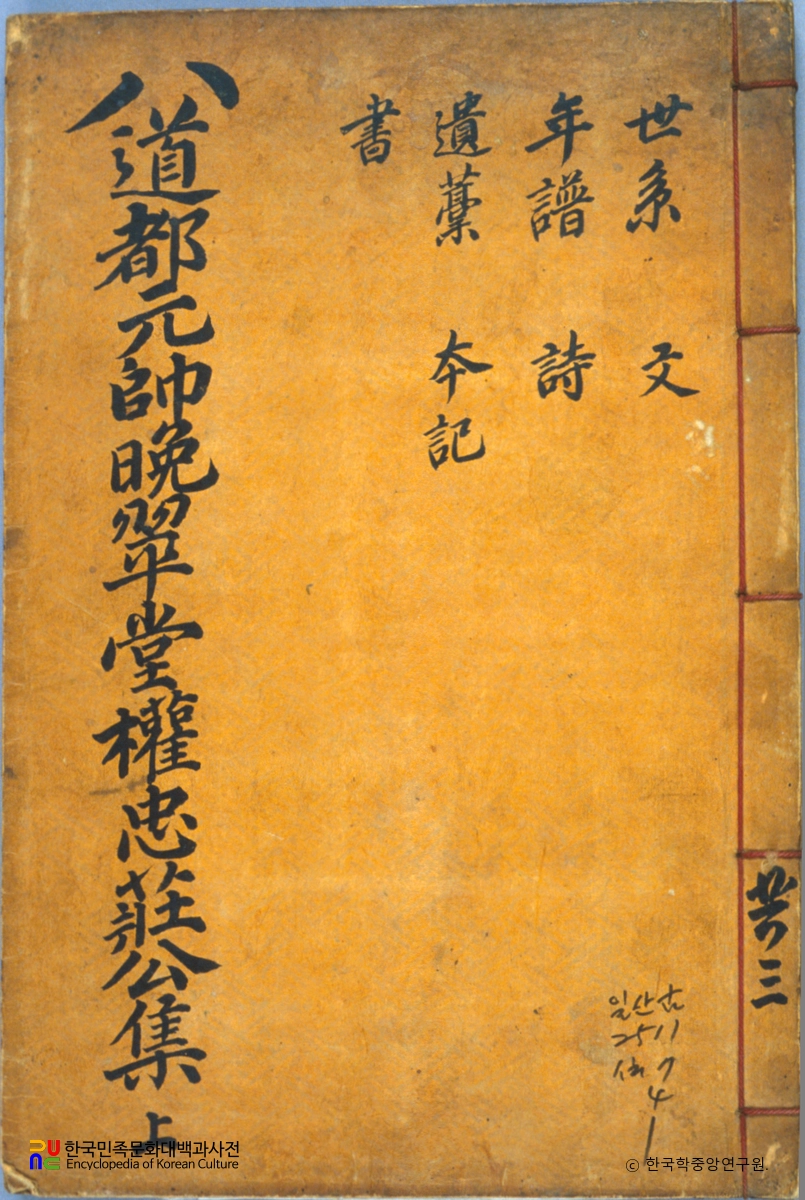 世系 文
年譜 詩
遺藁 本記
書
八道都元帥晩翠堂權忠莊公集 上
共三
일산古
2511
4
한국민족문화대백과사전
Encyclopedia of Korean Culture
ⓒ 한국학중앙연구원